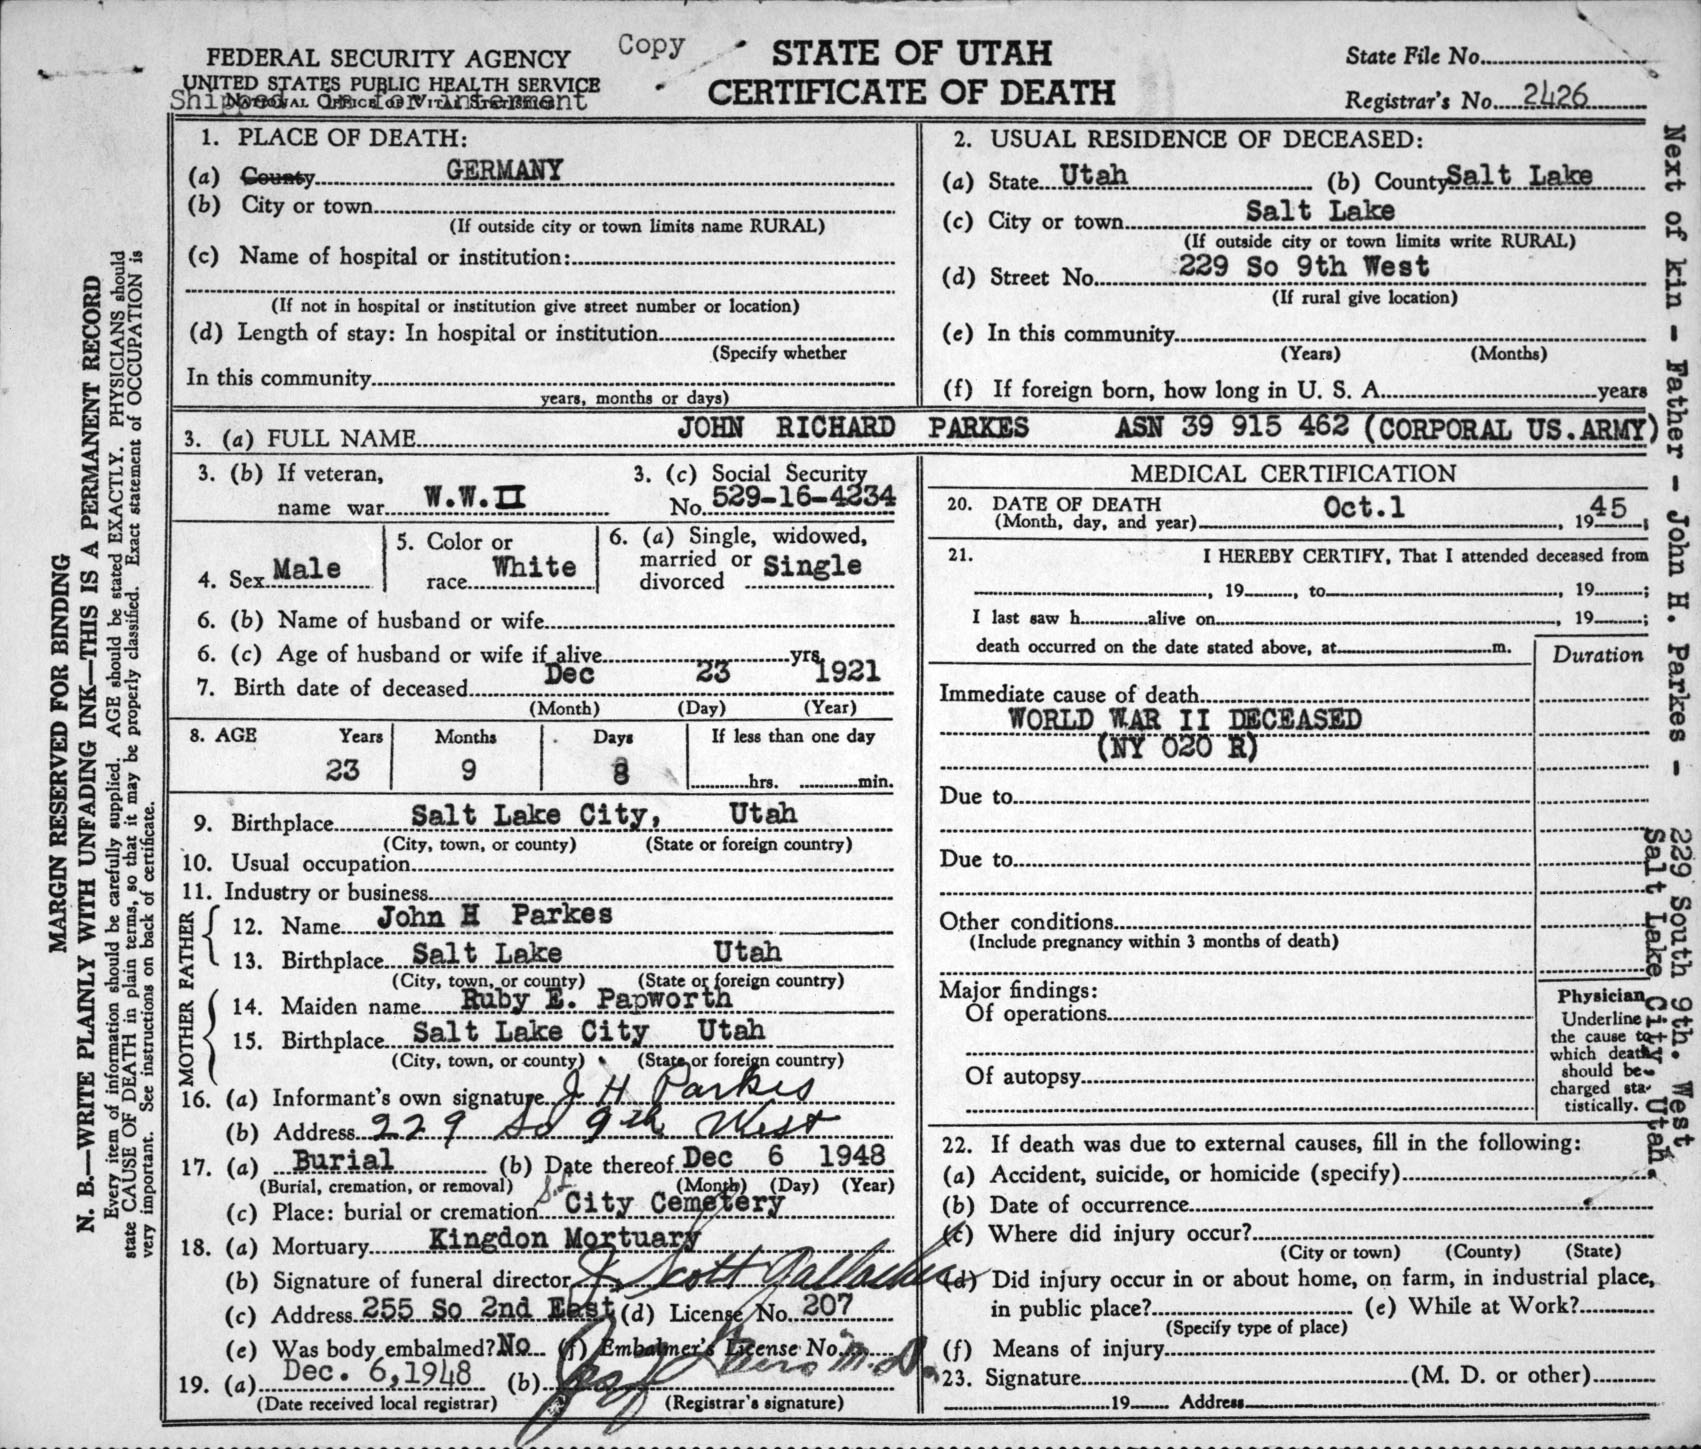 Copy
FEDERAL SECURITY AGENCY
UNITED STATES PUBLIC HEALTH SERVICE
NATIONAL OFFICE OF VITAL STATISTICS
Shipped in for interment
STATE OF UTAH
CERTIFICATE OF DEATH
State File No.
Registrar's No. 2426
1. PLACE OF DEATH:
(a) County GERMANY
(b) City or town
(If outside city or town limits name RURAL)
(c) Name of hospital or institution:
(If not in hospital or institution give street number or location)
(d) Length of stay: In hospital or institution
(Specify whether
In this community
years, months or days)
2. USUAL RESIDENCE OF DECEASED:
(a) State Utah (b) County Salt Lake
(c) City or town Salt Lake
(If outside city or town limits write RURAL)
(d) Street No. 229 So 9th West
(If rural give location)
(e) In this community
(Years) (Months)
(f) If foreign born, how long in U. S. A. years
3. (a) FULL NAME JOHN RICHARD PARKES ASN 39 915 462 (CORPORAL US.ARMY)
3. (b) If veteran,
name war W.W.II
3. (c) Social Security
No. 529-16-4234
4. Sex Male
5. Color or
race White
6. (a) Single, widowed,
married or
divorced Single
6. (b) Name of husband or wife
6. (c) Age of husband or wife if alive yrs.
7. Birth date of deceased Dec 23 1921
(Month) (Day) (Year)
8. AGE Years Months Days If less than one day
23 9 8 hrs. min.
9. Birthplace Salt Lake City, Utah
(City, town, or county) (State or foreign country)
10. Usual occupation
11. Industry or business
FATHER
12. Name John H Parkes
13. Birthplace Salt Lake Utah
(City, town, or county) (State or foreign country)
MOTHER
14. Maiden name Ruby E. Papworth
15. Birthplace Salt Lake City Utah
(City, town, or county) (State or foreign country)
16. (a) Informant's own signature J H Parkes
(b) Address 229 So 9th West
17. (a) Burial (b) Date thereof Dec 6 1948
(Burial, cremation, or removal) (Month) (Day) (Year)
(c) Place: burial or cremation S.L. City Cemetery
18. (a) Mortuary Kingdon Mortuary
(b) Signature of funeral director J. Scott
(c) Address 255 So 2nd East (d) License No. 207
(e) Was body embalmed? No (f) Embalmer's License No.
19. (a) Dec. 6,1948 (b) M.D.
(Date received local registrar) (Registrar's signature)
MEDICAL CERTIFICATION
20. DATE OF DEATH
(Month, day, and year) Oct.1, 1945
21. I HEREBY CERTIFY, That I attended deceased from
, 19 , to , 19 ;
I last saw h alive on , 19 ;
death occurred on the date stated above, at m.
Duration
Immediate cause of death
WORLD WAR II DECEASED
(NY 020 R)
Due to
Due to
Other conditions
(Include pregnancy within 3 months of death)
Major findings:
Of operations
Of autopsy
Physician
Underline
the cause to
which death
should be
charged sta-
tistically.
22. If death was due to external causes, fill in the following:
(a) Accident, suicide, or homicide (specify)
(b) Date of occurrence
(c) Where did injury occur?
(City or town) (County) (State)
(d) Did injury occur in or about home, on farm, in industrial place,
in public place? (e) While at Work?
(Specify type of place)
(f) Means of injury
23. Signature (M. D. or other)
19 Address
Next of kin - Father - John H. Parkes - 229 South 9th. West
Salt Lake City, Utah.
MARGIN RESERVED FOR BINDING
N. B.—WRITE PLAINLY WITH UNFADING INK—THIS IS A PERMANENT RECORD
Every item of information should be carefully supplied. AGE should be stated EXACTLY. PHYSICIANS should
state CAUSE OF DEATH in plain terms, so that it may be properly classified. Exact statement of OCCUPATION is
very important. See instructions on back of certificate.